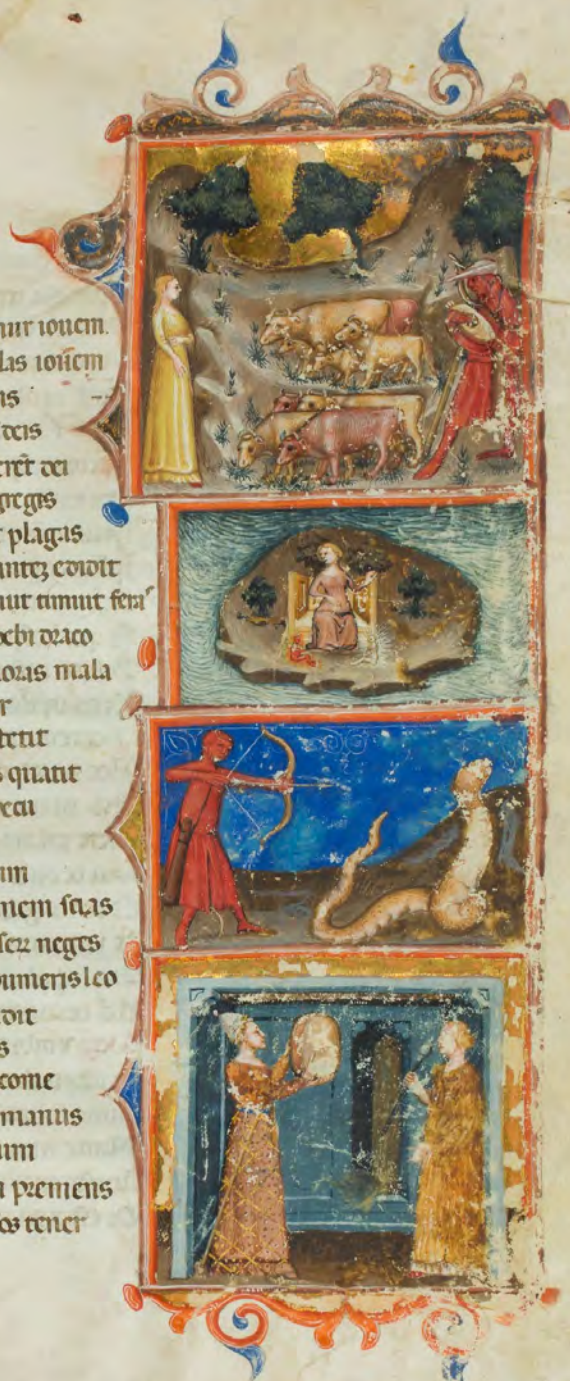 mur iouem.
las iouem
as
deis
eret dei
gregis
t plagas
antez edidit
aut timuit fera
oebi draco
loras mala
r
tetit
s quatit
pecu
um
mem scias
ser neges
humeris leo
dit
s
come
manus
um
premens
os tener